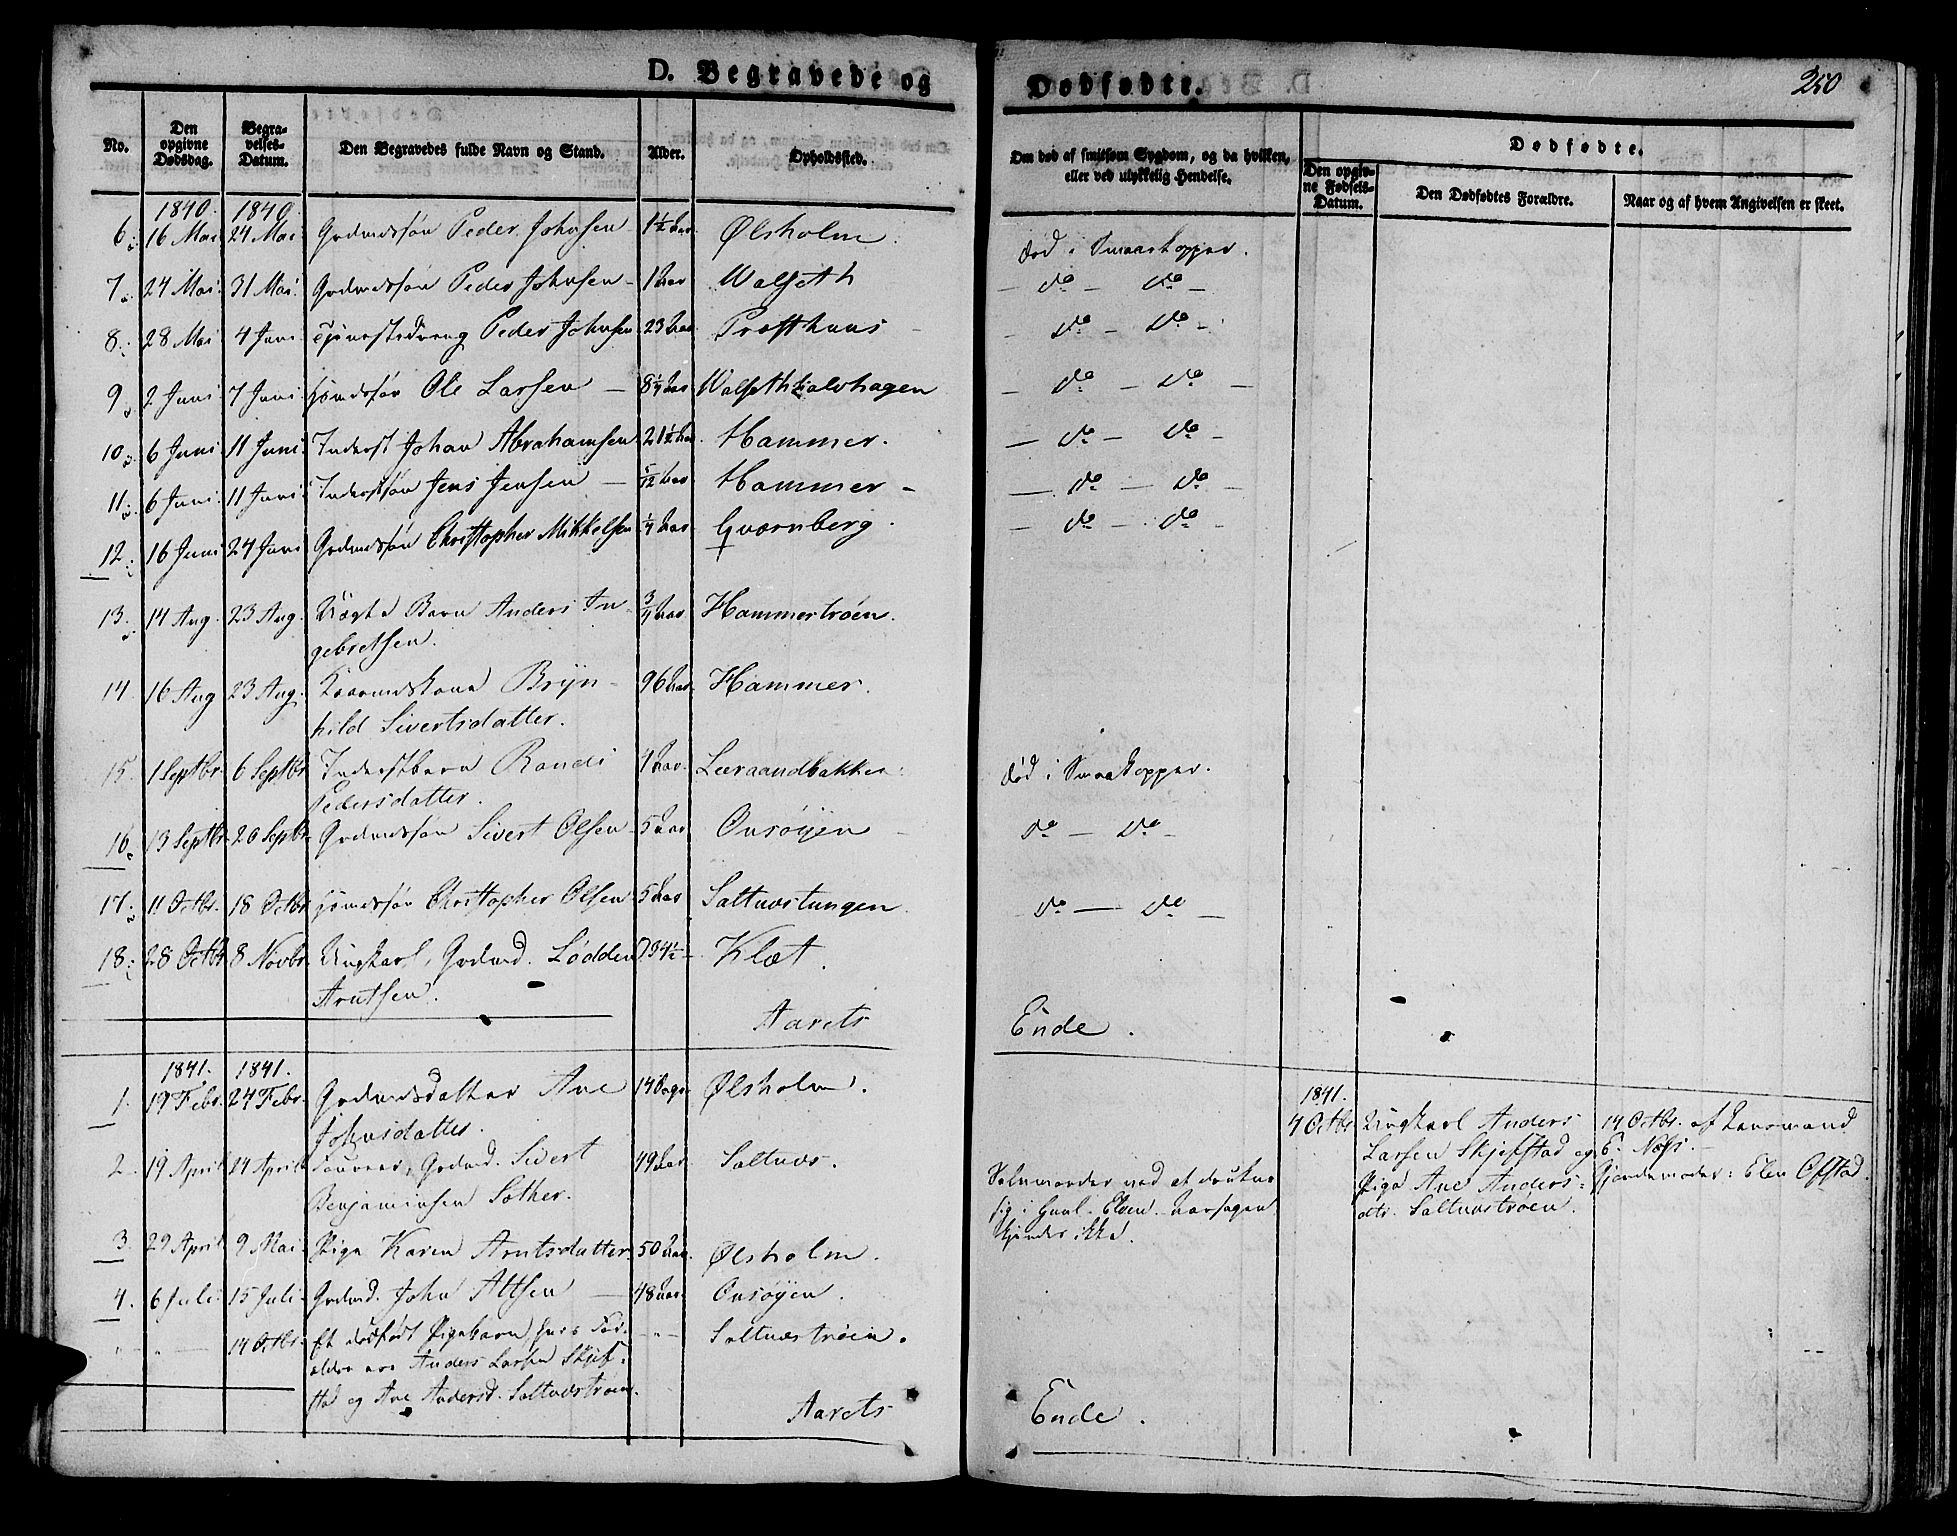 D. Begravede og
Dødfødte.
250
No.
Den opgivne Dødsdag.
Begravelses-Datum.
Den Begravedes fulde Navn og Stand.
Alder.
Opholdssted.
Om død af smitsom Sygdom, og da hvilken, eller ved ulykkelig Hendelse.
Dødfødte.
Den opgivne Fødsels-Datum.
Den Dødfødtes Forældre.
Naar og af hvem Angivelsen er skeet.
1840. 1840.
6. 16 Mai 24 Mai Gudmdssøn Peder Johnsen 1½ Aar Ølsholm. død i Smaaskopper.
7. 24 Mai. 31 Mai. Gudmdssøn Peder Johnsen 1 Aar Walseth — do — do —
8. 28 Mai 4 Juni Tjenestedreng Peder Johnsen 23 Aar Præsthuus — do — do —
9. 2 Juni 7 Juni Ole Larsen — 8¼ Aar — do — do —
10. 6 Juni 11 Juni Inderst Johan Abrahamsen 21½ Aar Hammer. — do — do —
11. 6 Juni 11 Juni Inderstsøn Jens Jensen — 5/12 Aar Hammer — do — do —
12. 16 Juni 24 Juni Gudmdssøn Christopher Mikkelsen ¼ Aar Qværnberg. — do — do —
13. 14 Aug. 23 Aug. Uægte Barn Anders In- ¾ Aar Hammertrøen.
gebretsen.
14. 16 Aug 23 Aug. Kaarmdskone Bryn- 96 Aar Hammer.
hild Sivertsdatter.
15. 1 Septbr. 6 Septbr Inderstbarn Randi 4 Aar. død i Smaakopper.
Pedersdatter.
16. 13 Septbr. 20 Septbr. Gudmdssøn Sivert Olsen 5 Aar Onsøyen — do — do —
17. 11 Octbr. 18 Octbr Christopher Olsen 5 Aar Saltnæstungen do — do —
18. 28 Octbr 8 Novbr. Ungkarl, Gudmd. Lødden 34½ Klæt.
Arntsen.
Aarets Ende.
1841. 1841.
1. 19 Febr. 24 Febr. Gudmdsdatter Ane 14 Dage Ølsholm.
Johnsdatter.
2. 19 April 24 April Sivert 49 Aar Saltnæs.
Benjaminsen Sother.
Selvmorder ved at drukne
sig i Guul-Elven. Aarsagen
kjendes ikke.
3. 29 April 9 Mai Pige Karen Arntsdatter. 50 Aar. Ølsholm.
4. 6 Juli. 15 Juli. Gudmd. John Altsen — 48 Aar. Onsøyen.
" " — 14 Octbr. Et dødfødt Pigebarn, hvis For- " — Saltnæstrøen.
ældre ere Anders Larsen Skjef-
stad og Ane Andersd. Saltnæstrøen.
Aarets Ende.
1841.
4 Octbr Ungkarl Anders
Larsen Skjefstad og
Pige Ane Anders-
dtr. Saltnæstrøen.
14 Octbr. af Lensmand
E. Næss. —
Gjordemoder: Elen Ofstad.